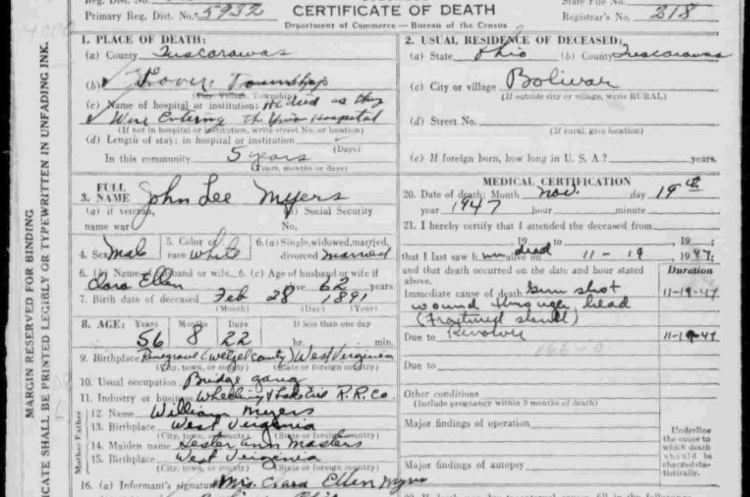 Reg. Dist. No.
Primary Reg. Dist. No. 5932
CERTIFICATE OF DEATH
Department of Commerce — Bureau of the Census
State File No.
Registrar's No. 218
MARGIN RESERVED FOR BINDING
CATE SHALL BE PRINTED LEGIBLY OR TYPEWRITTEN IN UNFADING INK.
1. PLACE OF DEATH:
(a) County Tuscarawas
(b) Township
(City, Village, Township)
(c) Name of hospital or institution: He died as they
Were Entering the Hospital
(If not in hospital or institution, write street No. or location)
(d) Length of stay: in hospital or institution
(Days)
In this community 5 years
(Years, months or days)
2. USUAL RESIDENCE OF DECEASED:
(a) State Ohio (b) County Tuscarawas
(c) City or village Bolivar
(If outside city or village, write RURAL)
(d) Street No.
(If rural, give location)
(e) If foreign born, how long in U. S. A.? years.
3. FULL NAME John Lee Myers
(a) If veteran, name war
(b) Social Security No.
4. Sex Male
5. Color or race White
6. (a) Single, widowed, married, divorced married
6. (b) Name of husband or wife. 6. (c) Age of husband or wife if
Ellen alive 62 years
7. Birth date of deceased Feb 28 1891
(Month) (Day) (Year)
8. AGE: Years Months Days If less than one day
56 8 22 hr. min.
9. Birthplace (Wetzel County) West Virginia
(City, town, or county) (State or foreign country)
10. Usual occupation Bridge gang
11. Industry or business Wheeling & Lake Erie R.R. Co.
Mother Father
12. Name William Myers
13. Birthplace West Virginia
(City, town, or county) (State or foreign country)
14. Maiden name Hester Ann Masters
15. Birthplace West Virginia
(City, town, or county) (State or foreign country)
16. (a) Informant's signature Mrs. Clara Ellen Myers
MEDICAL CERTIFICATION
20. Date of death: Month Nov. day 19th
year 1947 hour minute
21. I hereby certify that I attended the deceased from
19 to 19
that I last saw him dead alive on 11-19 1947;
and that death occurred on the date and hour stated above.
Duration
Immediate cause of death Gun shot 11-19-47
wound through head
(Fractured skull)
Due to Revolver 11-19-47
166-0
Due to
Other conditions
(Include pregnancy within 3 months of death)
Major findings of operation
Major findings of autopsy
Underline
the cause to
which death
should be
charged sta-
tistically.